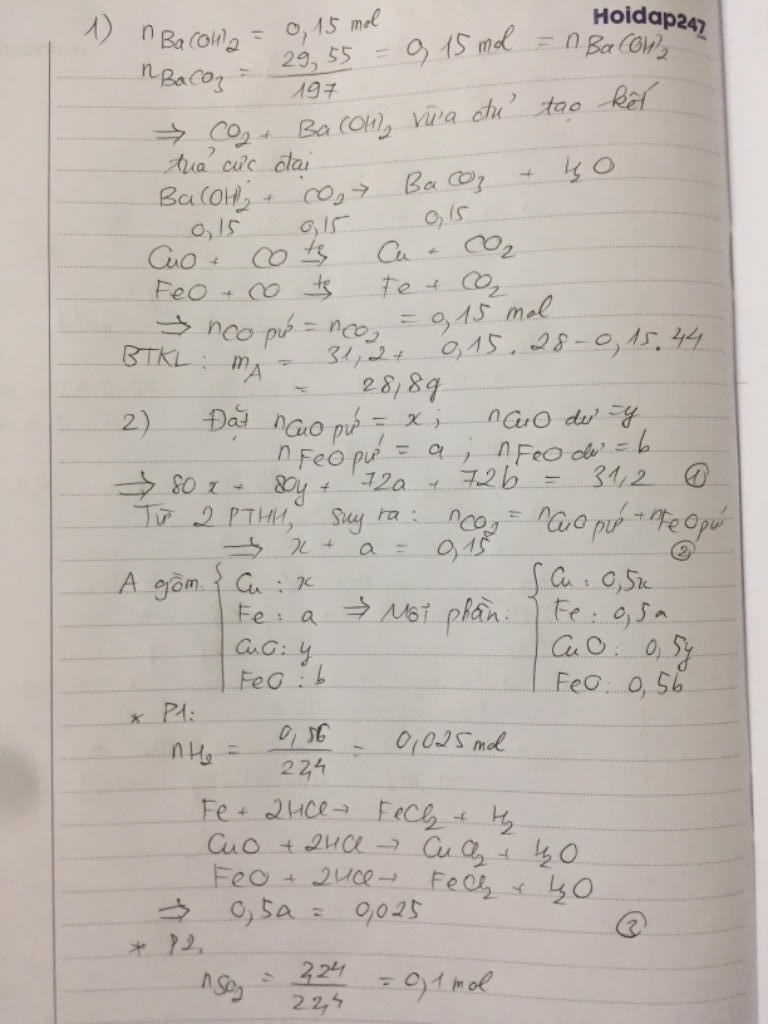 Hoidap247
1) nBa(OH)₂ = 0,15 mol
nBaCO₃ = 29,55/197 = 0,15 mol = nBa(OH)₂
⇒ CO₂ + Ba(OH)₂ vừa đủ tạo kết
tủa cực đại
Ba(OH)₂ + CO₂ → BaCO₃ + H₂O
0,15 0,15 0,15
CuO + CO →(t°) Cu + CO₂
FeO + CO →(t°) Fe + CO₂
⇒ nCO pứ = nCO₂ = 0,15 mol
BTKL: mA = 31,2 + 0,15.28 - 0,15.44
= 28,8g
2) Đặt nCuO pứ = x; nCuO dư = y
nFeO pứ = a; nFeO dư = b
⇒ 80x + 80y + 72a + 72b = 31,2 ①
Từ 2 PTHH, suy ra: nCO₂ = nCuO pứ + nFeO pứ
⇒ x + a = 0,15 ②
A gồm { Cu: x ⇒ Mỗi phần: { Cu: 0,5x
Fe: a Fe: 0,5a
CuO: y CuO: 0,5y
FeO: b FeO: 0,5b
* P1:
nH₂ = 0,56/22,4 = 0,025 mol
Fe + 2HCl → FeCl₂ + H₂
CuO + 2HCl → CuCl₂ + H₂O
FeO + 2HCl → FeCl₂ + H₂O
⇒ 0,5a = 0,025 ③
* P2:
nSO₂ = 2,24/22,4 = 0,1 mol